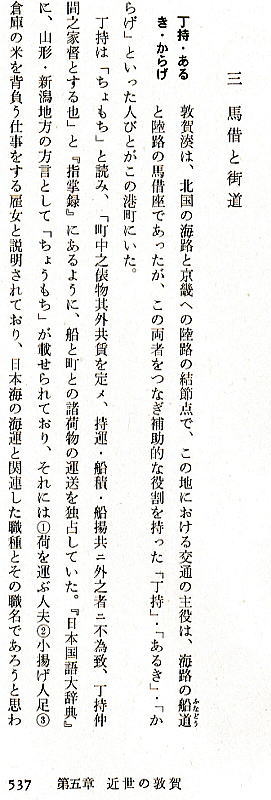 三　馬借と街道
丁持・ある
き・からげ
敦賀湊は、北国の海路と京畿への陸路の結節点で、この地における交通の主役は、海路の船道
ふなどう
と陸路の馬借座であったが、この両者をつなぎ補助的な役割を持った「丁持」・「あるき」・「か
らげ」といった人びとがこの港町にいた。
丁持は「ちょもち」と読み、「町中之俵物其外共賃を定メ、持運・船積・船揚共ニ外之者ニ不為致、丁持仲
間之家督とする也」と『指掌録』にあるように、船と町との諸荷物の運送を独占していた。『日本国語大辞典』
に、山形・新潟地方の方言として「ちょうもち」が載せられており、それには①荷を運ぶ人夫②小揚げ人足③
倉庫の米を背負う仕事をする雇女と説明されており、日本海の海運と関連した職種とその職名であろうと思わ
537　第五章　近世の敦賀